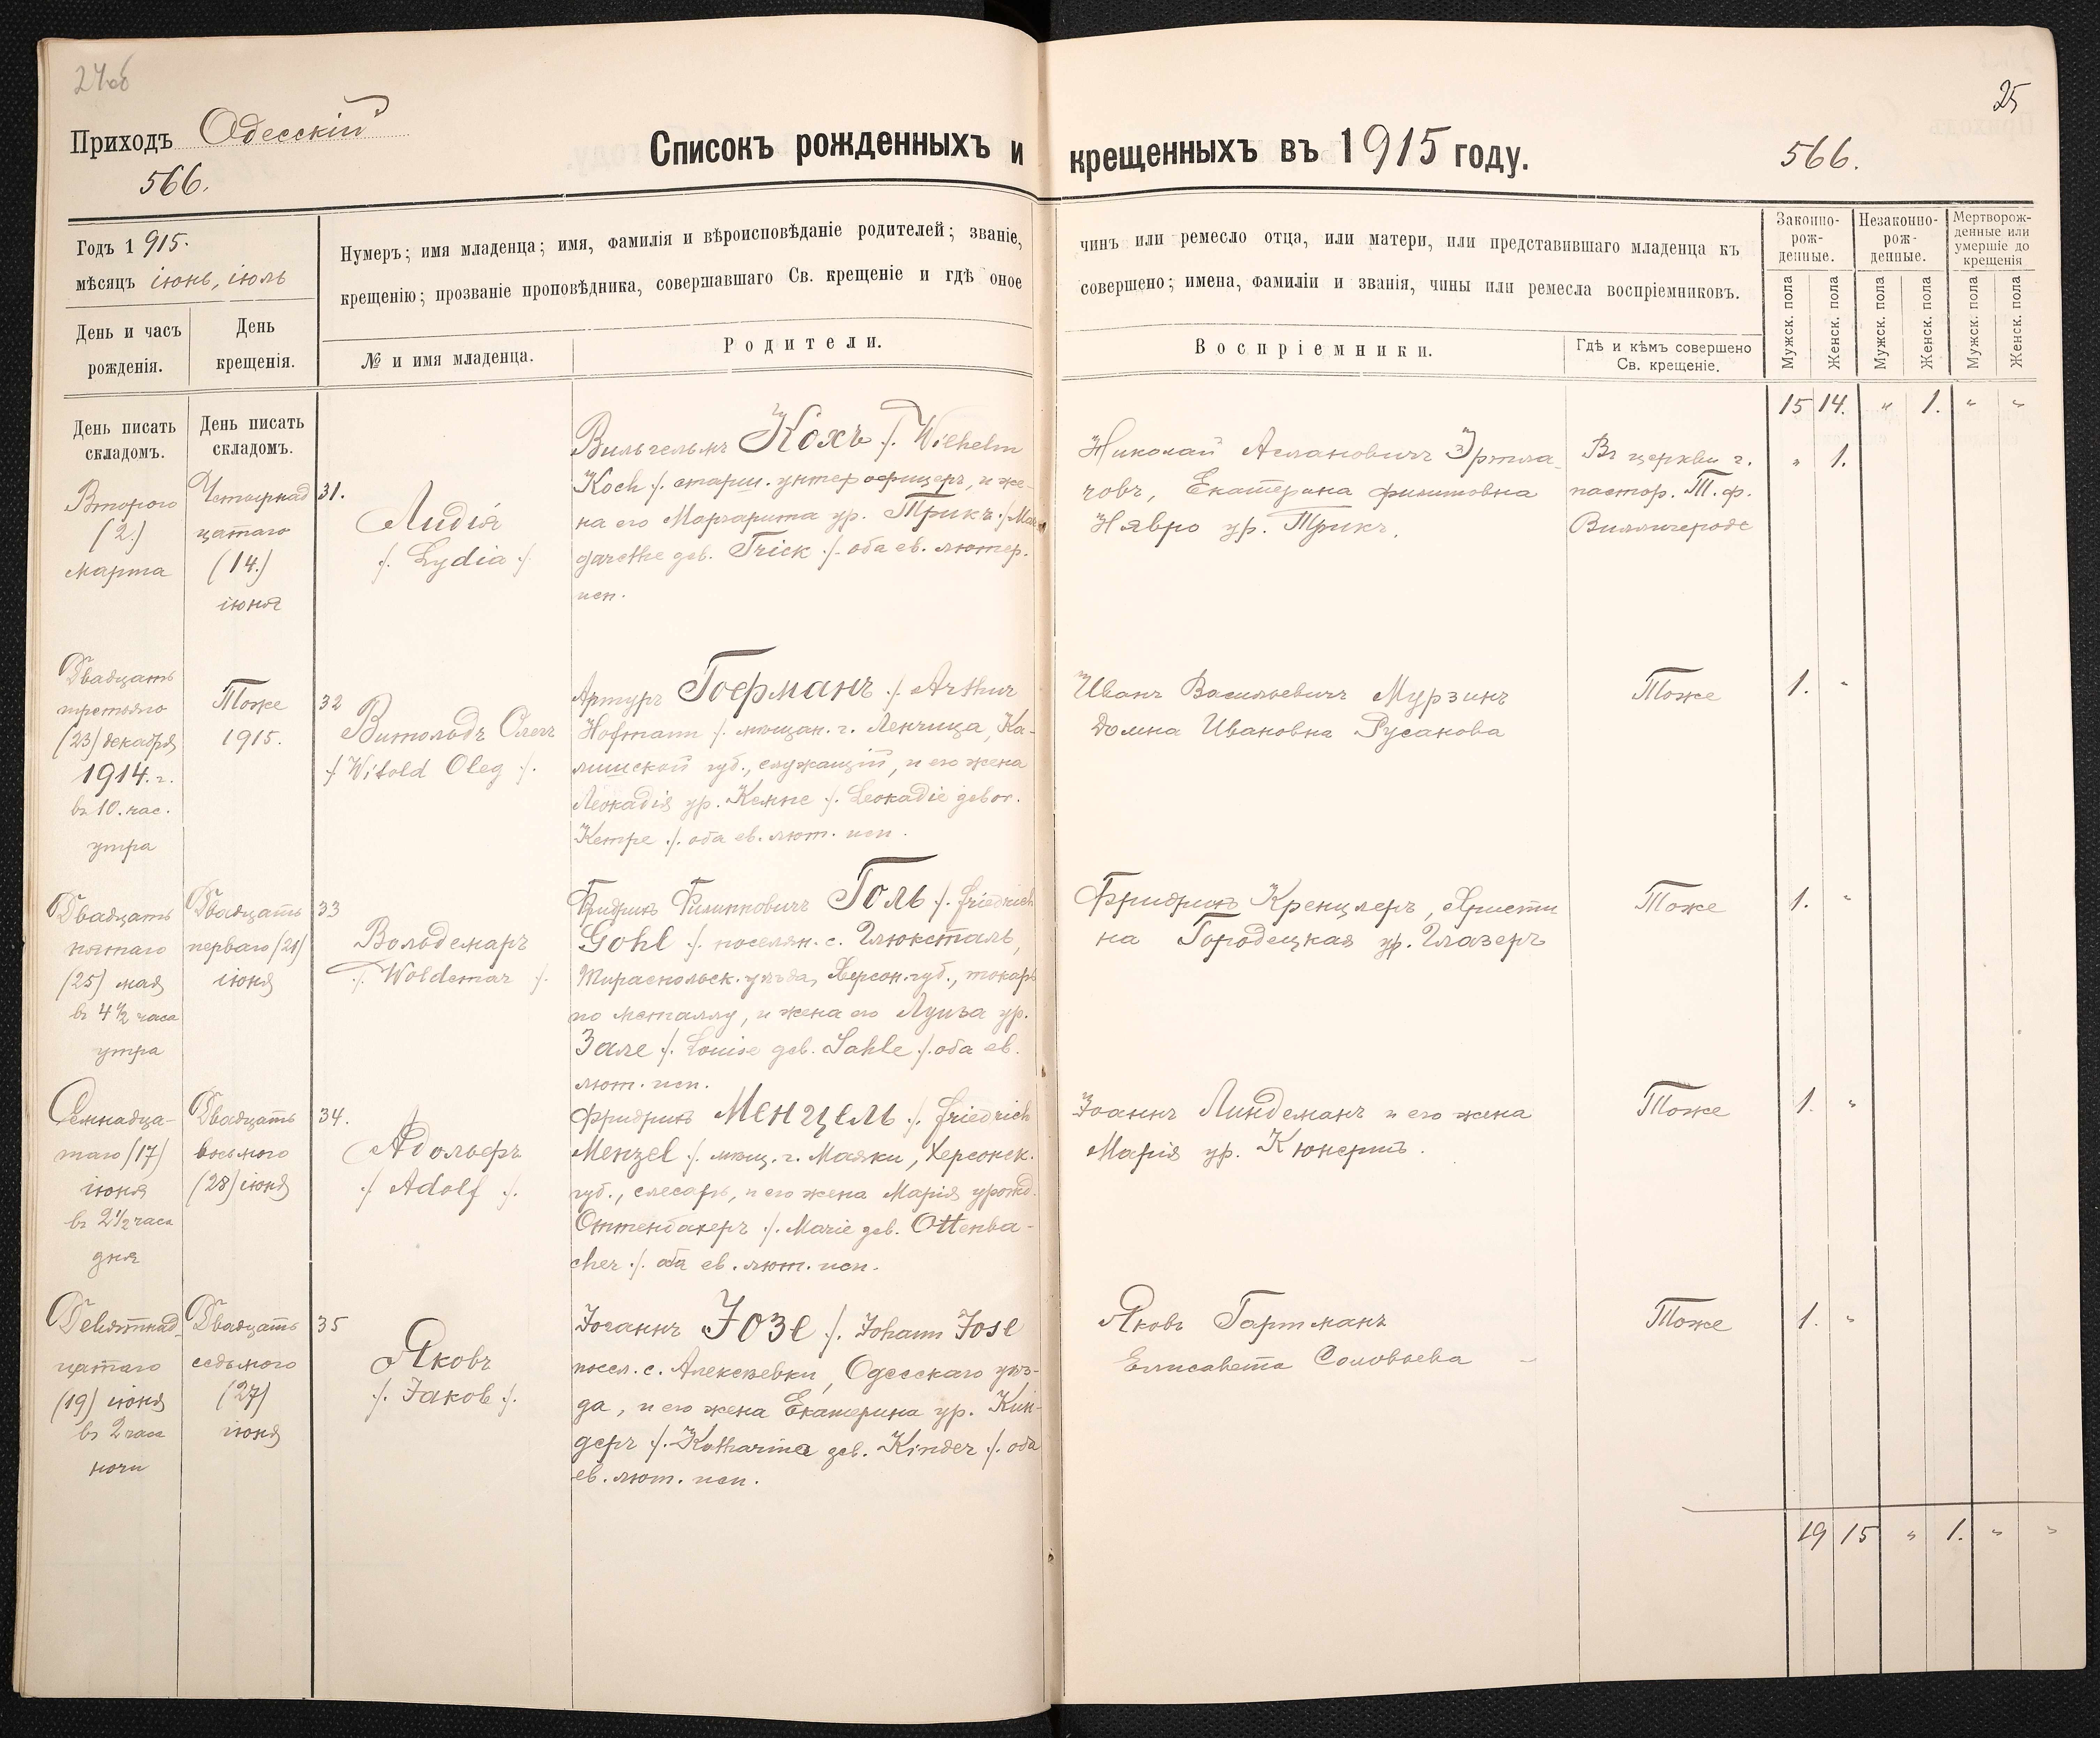 24об
Приходъ Одесскій
566.
Списокъ рожденныхъ и
Годъ 1915.
мѣсяцъ іюнь, іюль
Нумеръ; имя младенца; имя, фамилія и вѣроисповѣданіе родителей; званіе,
крещенію; прозваніе проповѣдника, совершавшаго Св. крещеніе и гдѣ оное
День и часъ
рожденія.
День
крещенія.
№ и имя младенца.
Родители.
День писать
складомъ.
День писать
складомъ.
Второго
(2.)
марта
Четырнад
цатаго
(14.)
іюня
31.
Лидія
/. Lydia ./
Вильгельмъ Кохъ /. Wilhelm
Koch ./. старш. унтер офицеръ, и же-
на его Маргарита ур. Трикъ /. Mar
garethe geb. Trick ./. оба ев. лютер.
исп.
Двадцать
третьяго
(23) декабря
1914. г.
въ 10. час.
утра
Тоже
1915.
32
Витольдъ Олегъ
/. Witold Oleg ./.
Артуръ Гофманъ /. Arthur
Hofmann /. мѣщан. г. Ленчица, Ка-
лишской губ., служащій, и его жена
Леокадія ур. Кемпе /. Leokadie gebor.
Kempe ./. оба ев. лют. исп.
Двадцать
пятаго
(25) мая
въ 4 1/2 часа
утра
Двадцать
перваго (21)
іюня
33
Вольдемаръ
/. Woldemar ./.
Фридрихъ Филипповичъ Голь /. Friedrich
Gohl ./. поселян. с. Глюксталь,
Тираспольск. уѣзда, Херсон. губ., токарь
по металлу, и жена его Луиза ур.
Зале /. Louise geb. Sahle ./. оба ев.
лют. исп.
Семнадца-
таго (17)
іюня
въ 2 1/2 часа
дня
Двадцать
восьмого
(28) іюня
34.
Адольфъ
/. Adolf ./.
Фридрихъ Менцель /. Friedrich
Menzel /. мѣщ. г. Маяки, Херсонск.
губ., слесарь, и его жена Марія урожд.
Оттенбахеръ /. Marie geb. Ottenba-
cher ./. оба ев. лют. исп.
Девятнад-
цатаго
(19) іюня
въ 2 часа
ночи
Двадцать
седьмого
(27)
іюня
35
Яковъ
/. Jakob ./.
Іоганнъ Іозе /. Johann Jose
посел. с. Алексѣевки, Одесскаго уѣз-
да, и его жена Екатерина ур. Кин-
деръ /. Katharina geb. Kinder ./. оба
ев. лют. исп.
25
крещенныхъ въ 1915 году.
566.
чинъ или ремесло отца, или матери, или представившаго младенца къ
совершено; имена, фамиліи и званія, чины или ремесла воспріемниковъ.
Воспріемники.
Гдѣ и кѣмъ совершено
Св. крещеніе.
Законно-
рож-
денные.
Незаконно-
рож-
денные.
Мертворож-
денные или
умершіе до
крещенія
Мужск. пола
Женск. пола
Мужск. пола
Женск. пола
Мужск. пола
Женск. пола
15 14. " 1. " "
Николай Аслановичъ
Екатерина Филиповна
ур. Трикъ.
Въ церкви г.
пастор. Т. ф.
" 1.
Иванъ Васильевичъ Мурзинъ
Домна Ивановна Русанова
Тоже
1. "
Фридрихъ Кренцлеръ, Христи
на Городецкая ур. Глазеръ
Тоже
1. "
Іоаннъ Линдеманъ и его жена
Марія ур. Кюнертъ.
Тоже
1. "
Яковъ Гартманъ
Елисавета Соловьева
Тоже
1. "
19 15 " 1. " "